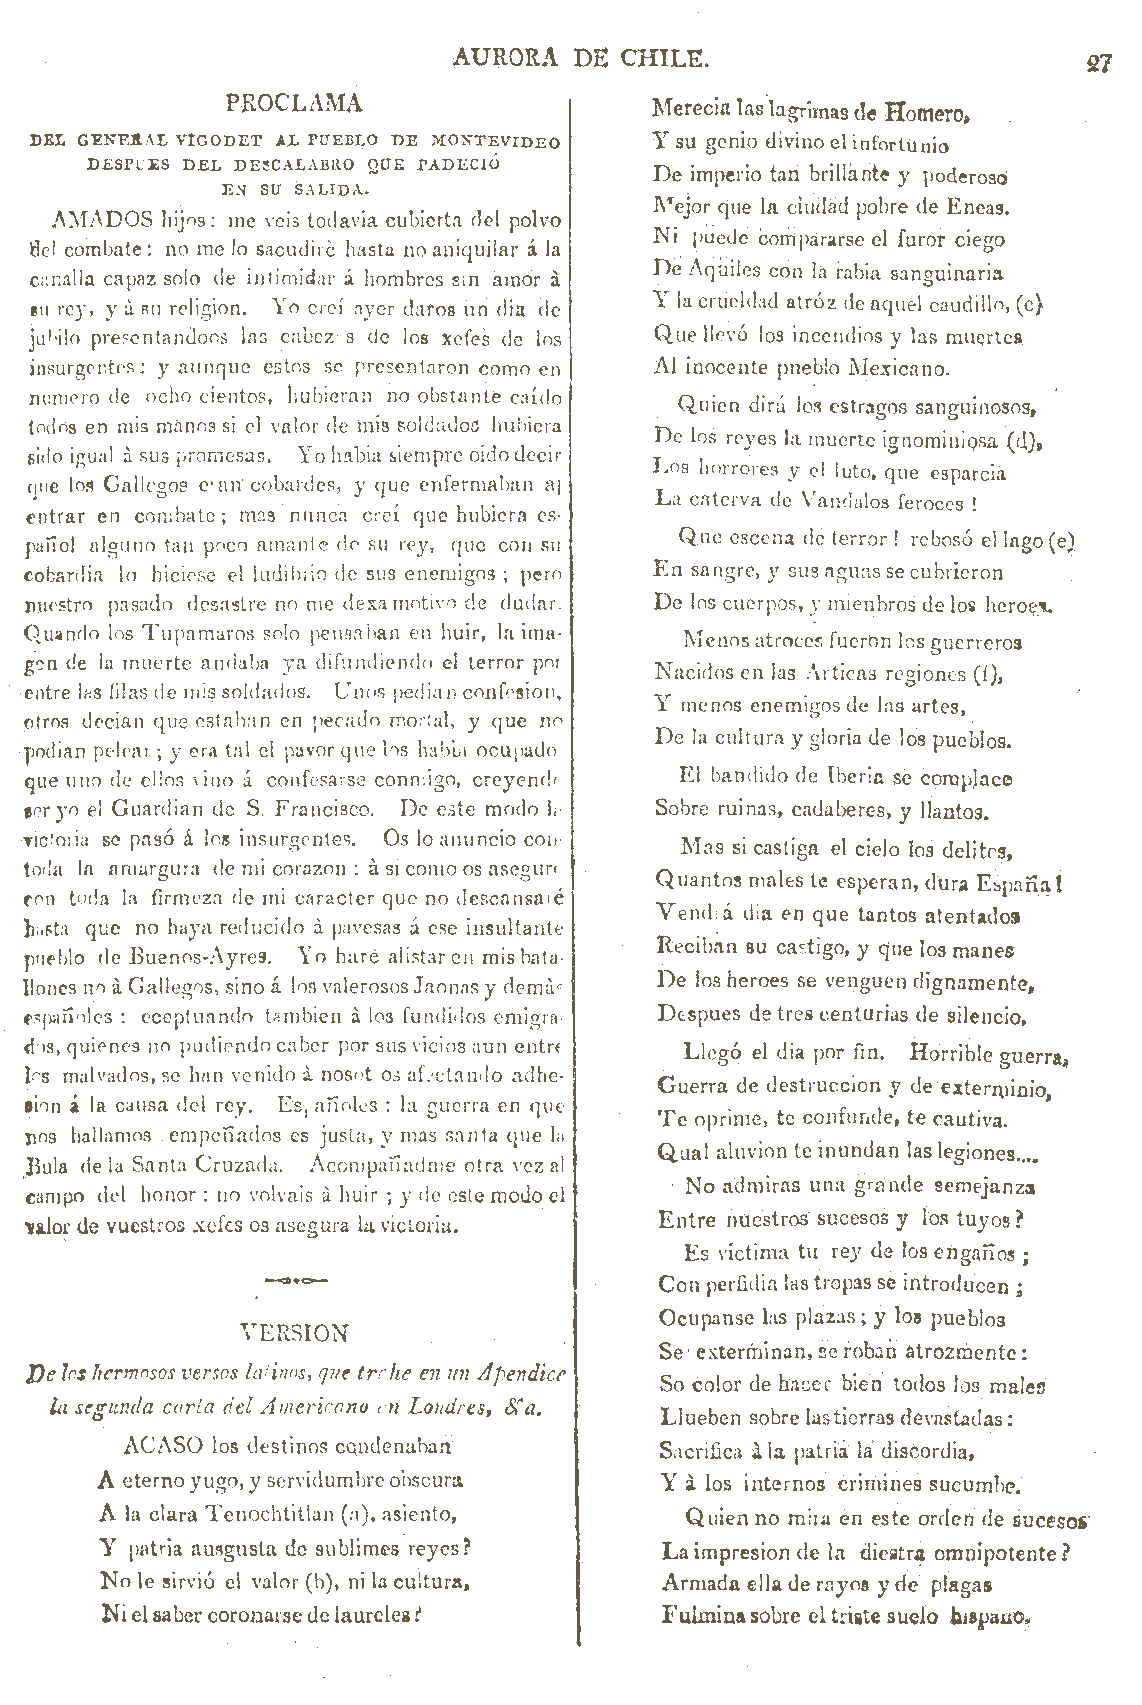 AURORA DE CHILE.
27
PROCLAMA
DEL GENERAL VIGODET AL PUEBLO DE MONTEVIDEO
DESPUES DEL DESCALABRO QUE PADECIÓ
EN SU SALIDA.
AMADOS hijos: me veis todavia cubierta del polvo
del combate: no me lo sacudirè hasta no aniquilar á la
canalla capaz solo de intimidar á hombres sin amor à
su rey, y à su religion. Yo creí ayer daros un dia de
jubilo presentandoos las cabezas de los xefes de los
insurgentes; y aunque estos se presentaron como en
numero de ocho cientos, hubieran no obstante caído
todos en mis manos si el valor de mis soldados hubiera
sido igual à sus promesas. Yo habia siempre oido decir
que los Gallegos eran cobardes, y que enfermaban al
entrar en combate; mas nunca creí que hubiera es-
pañol alguno tan poco amante de su rey, que con su
cobardia lo hiciese el ludibrio de sus enemigos; pero
nuestro pasado desastre no me dexa motivo de dudar.
Quando los Tupamaros solo pensaban en huir, la ima-
gen de la muerte andaba ya difundiendo el terror por
entre las filas de mis soldados. Unos pedian confesion,
otros decian que estaban en pecado mortal, y que no
podian pelear; y era tal el pavor que los habia ocupado
que uno de ellos vino á confesarse conmigo, creyendo
ser yo el Guardian de S. Francisco. De este modo la
victoria se pasó á los insurgentes. Os lo anuncio con
toda la amargura de mi corazon: à si como os aseguro
con toda la firmeza de mi caracter que no descansaré
hasta que no haya reducido à pavesas á ese insultante
pueblo de Buenos-Ayres. Yo haré alistar en mis bata-
llones no à Gallegos, sino á los valerosos Jaonas y demàs
españoles: eceptuando tambien à los fundidos emigra-
dos, quienes no pudiendo caber por sus vicios aun entre
los malvados, se han venido à nosotros afectando adhe-
sion á la causa del rey. Españoles: la guerra en que
nos hallamos empeñados es justa, y mas santa que la
Bula de la Santa Cruzada. Acompañadme otra vez al
campo del honor: no volvais à huir; y de este modo el
valor de vuestros xefes os asegura la victoria.
VERSION
De los hermosos versos latinos, que trahe en un Apendice
la segunda carta del Americano en Londres, &a.
ACASO los destinos condenaban
A eterno yugo, y servidumbre obscura
A la clara Tenochtitlan (a), asiento,
Y patria ausgusta de sublimes reyes?
No le sirvió el valor (b), ni la cultura,
Ni el saber coronarse de laureles?
Merecia las lagrimas de Homero,
Y su genio divino el infortunio
De imperio tan brillante y poderoso
Mejor que la ciudad pobre de Eneas.
Ni puede compararse el furor ciego
De Aquiles con la rabia sanguinaria
Y la crueldad atróz de aquel caudillo, (c)
Que llevó los incendios y las muertes
Al inocente pueblo Mexicano.
Quien dirá los estragos sanguinosos,
De los reyes la muerte ignominiosa (d),
Los horrores y el luto, que esparcia
La caterva de Vandalos feroces!
Que escena de terror! rebosó el lago (e)
En sangre, y sus aguas se cubrieron
De los cuerpos, y mienbros de los heroes.
Menos atroces fueron los guerreros
Nacidos en las Articas regiones (f),
Y menos enemigos de las artes,
De la cultura y gloria de los pueblos.
El bandido de Iberia se complace
Sobre ruinas, cadaberes, y llantos.
Mas si castiga el cielo los delitos,
Quantos males te esperan, dura España!
Vendrá dia en que tantos atentados
Reciban su castigo, y que los manes
De los heroes se venguen dignamente,
Despues de tres centurias de silencio,
Llegó el dia por fin. Horrible guerra,
Guerra de destruccion y de exterminio,
Te oprime, te confunde, te cautiva.
Qual aluvion te inundan las legiones....
No admiras una grande semejanza
Entre nuestros sucesos y los tuyos?
Es víctima tu rey de los engaños;
Con perfidia las tropas se introducen;
Ocupanse las plazas; y los pueblos
Se exterminan, se roban atrozmente:
So color de hacer bien todos los males
Llueben sobre las tierras devastadas:
Sacrifica à la patria la discordia,
Y à los internos crimines sucumbe.
Quien no mira en este orden de sucesos
La impresion de la diestra omnipotente?
Armada ella de rayos y de plagas
Fulmina sobre el triste suelo hispano.